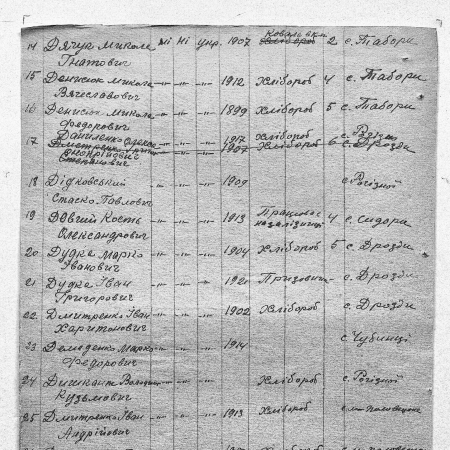 Ковальски
14 Дячук Микола ні ні укр. 1907 Хлібороб 2 с. Табори
Гнатович
15 Денисюк Микола -"- -"- -"- 1912 Хлібороб 4 с. Табори
Вячеславович
16 Денисюк Микола -"- -"- -"- 1899 Хлібороб 5 с. Табори
Федорович
Даниленко 1917 Хлібороб с.
17 Дмитренко 1907 Хлібороб 6 с. Дрозди
Онопрійович
Степанович
18 Дідковський 1909 с. Рогізної
Стасько Павлович
19 Довгий Кость -"- -"- -"- 1913 Працював 4 с. Сидора
Олександрович на залізниці
20 Дудка Марко -"- -"- -"- 1904 Хлібороб 5 с. Дрозди
Іванович
21 Дудка Іван -"- -"- -"- 1920 с. Дрозди
Григорович
22 Дмитренко Іван -"- -"- -"- 1902 Хлібороб с. Дрозди
Харитонович
23 Демиденко Марко -"- -"- -"- 1914 с. Чубинці
Федорович
24 Дишкант -"- -"- -"- Хлібороб с. Рогізної
Кузьмович
25 Дмитренко Іван -"- -"- -"- 1913 Хлібороб
Андрійович